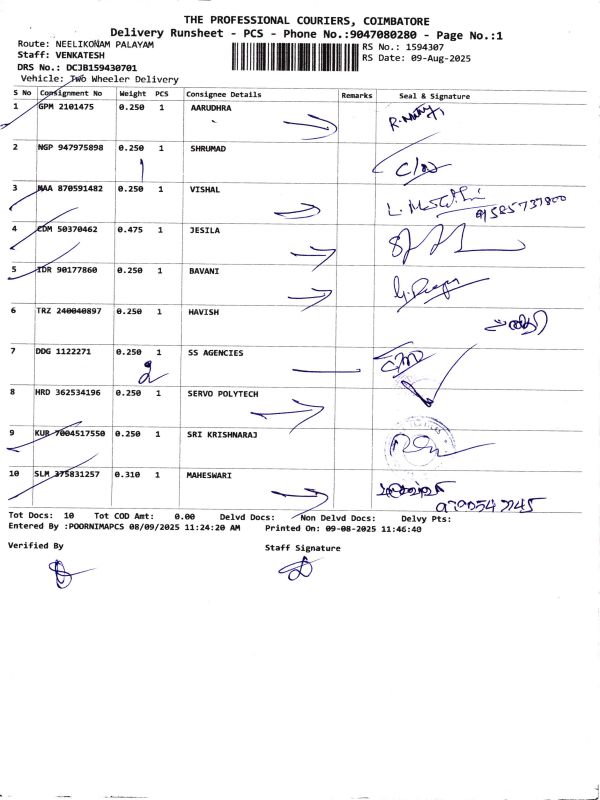 THE PROFESSIONAL COURIERS, COIMBATORE
Delivery Runsheet - PCS - Phone No.:9047080280 - Page No.:1
Route: NEELIKONAM PALAYAM
RS No.: 1594307
Staff: VENKATESH
RS Date: 09-Aug-2025
DRS No.: DCJB159430701
Vehicle: Two Wheeler Delivery
S No Consignment No Weight PCS Consignee Details Remarks Seal & Signature
1 GPM 2101475 0.250 1 AARUDHRA
2 NGP 947975898 0.250 1 SHRUMAD
3 MAA 870591482 0.250 1 VISHAL
4 CDM 50370462 0.475 1 JESILA
5 IDR 90177860 0.250 1 BAVANI
6 TRZ 240040897 0.250 1 HAVISH
7 DDG 1122271 0.250 1 SS AGENCIES
8 HRD 362534196 0.250 1 SERVO POLYTECH
9 KUR 7004517550 0.250 1 SRI KRISHNARAJ
10 SLM 375831257 0.310 1 MAHESWARI
Tot Docs: 10 Tot COD Amt: 0.00 Delvd Docs: Non Delvd Docs: Delvy Pts:
Entered By :POORNIMAPCS 08/09/2025 11:24:20 AM Printed On: 09-08-2025 11:46:40
Verified By
Staff Signature